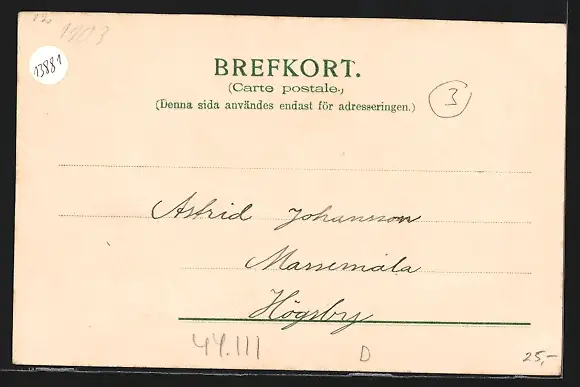 1903
13881
BREFKORT.
(Carte postale.)
(Denna sida användes endast för adresseringen.)
3
Astrid Johansson
Massemåla
Högsby
44.111
D
25,-